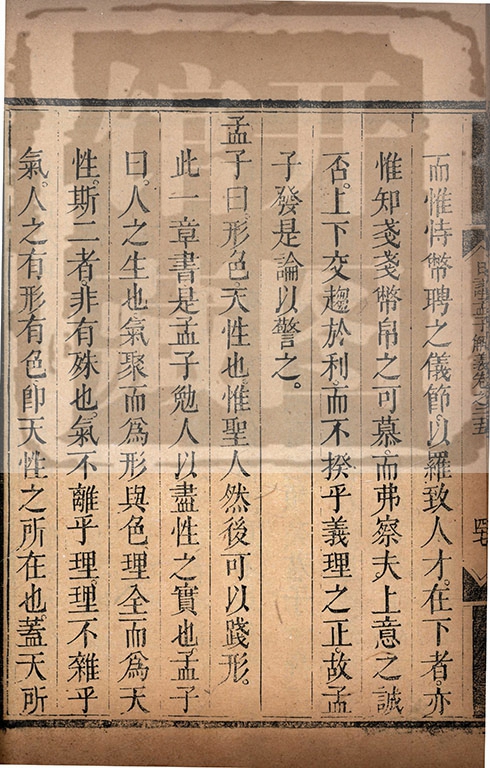 而惟恃幣聘之儀節以羅致人才。在下者。亦
惟知戔戔幣帛之可慕。而弗察夫上意之誠
否。上下交趨於利。而不揆乎義理之正。故孟
子發是論以警之。
孟子曰。形色。天性也。惟聖人然後可以踐形。
此一章書是孟子勉人以盡性之實也。孟子
曰。人之生也。氣聚而爲形與色。理全而爲天
性。斯二者。非有殊也。氣不離乎理。理不雜乎
氣。人之有形有色。卽天性之所在也。蓋天所